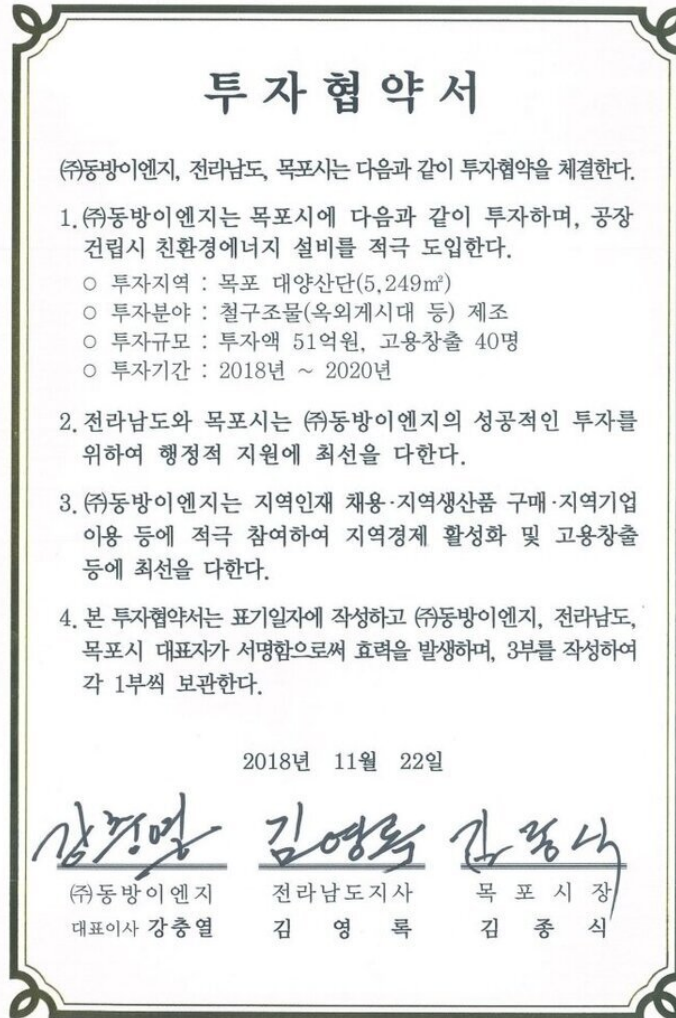 투자협약서
㈜동방이엔지, 전라남도, 목포시는 다음과 같이 투자협약을 체결한다.
1. ㈜동방이엔지는 목포시에 다음과 같이 투자하며, 공장
건립시 친환경에너지 설비를 적극 도입한다.
○ 투자지역 : 목포 대양산단(5,249㎡)
○ 투자분야 : 철구조물(옥외게시대 등) 제조
○ 투자규모 : 투자액 51억원, 고용창출 40명
○ 투자기간 : 2018년 ~ 2020년
2. 전라남도와 목포시는 ㈜동방이엔지의 성공적인 투자를
위하여 행정적 지원에 최선을 다한다.
3. ㈜동방이엔지는 지역인재 채용·지역생산품 구매·지역기업
이용 등에 적극 참여하여 지역경제 활성화 및 고용창출
등에 최선을 다한다.
4. 본 투자협약서는 표기일자에 작성하고 ㈜동방이엔지, 전라남도,
목포시 대표자가 서명함으로써 효력을 발생하며, 3부를 작성하여
각 1부씩 보관한다.
2018년 11월 22일
강충열 김영록 김종식
㈜동방이엔지 전라남도지사 목포시장
대표이사 강충열 김영록 김종식